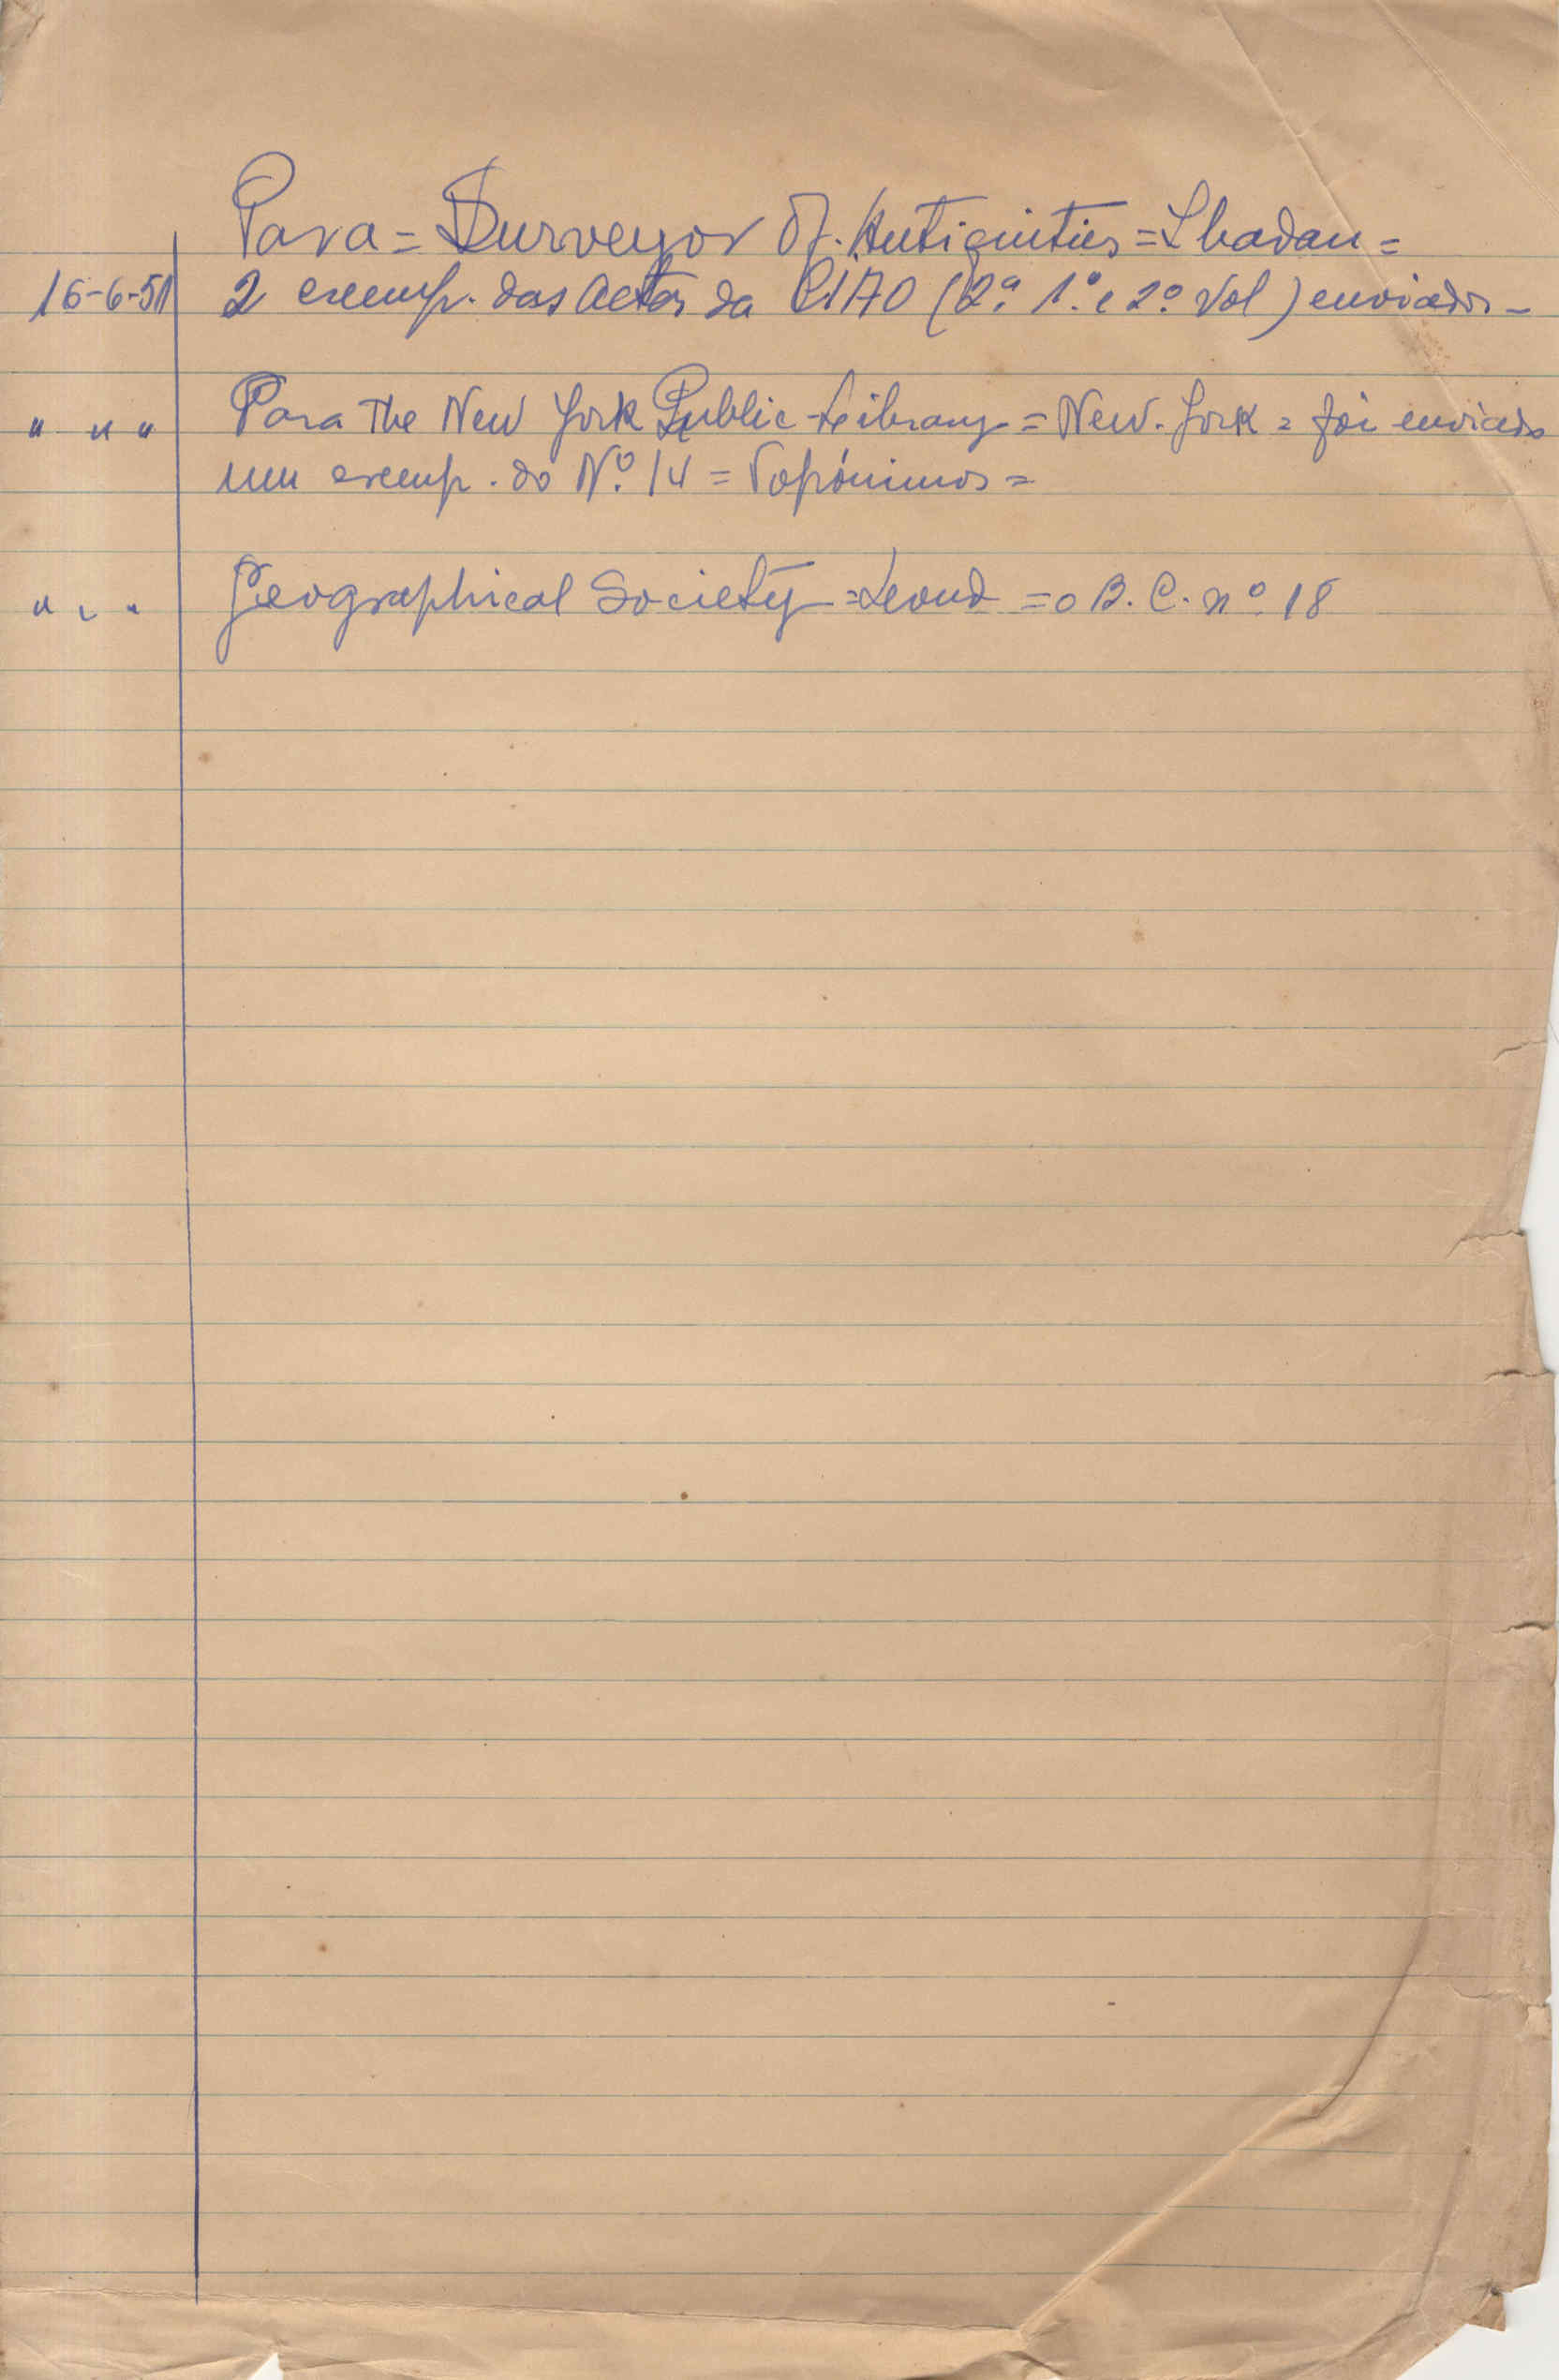 Para = Surveyor Of. Antiquities = Ibadan =
16-6-51 2 exemp. das Actas da CIAO (2ª 1º e 2º Vol) enviados -
" " " Para The New York Public Library = New. York = foi enviado
um exemp. do Nº 14 = Topónimos =
" " " Geographical Society = Lond = o B. C. nº 18